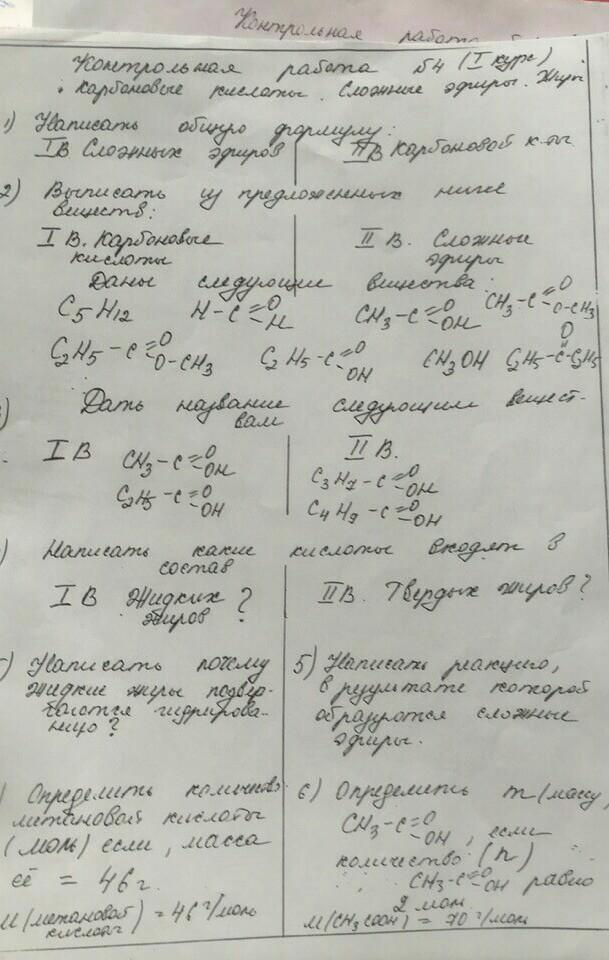 Контрольная работа
Контрольная работа №4 (I курс)
Карбоновые кислоты. Сложные эфиры. Жиры
1) Написать общую формулу:
I В Сложных эфиров
II В Карбоновой к-ты
2) Выписать из предложенных ниже
веществ:
I В. Карбоновые
кислоты
II В. Сложные
эфиры
Даны следующие вещества:
C5H12 H-C=O-H CH3-C=O-OH CH3-C=O-O-CH3
C2H5-C=O-O-CH3 C2H5-C=O-OH CH3OH C2H5-C=O-C2H5
) Дать название следующим вещест-
вам
I В
CH3-C=O-OH
C2H5-C=O-OH
II В.
C3H7-C=O-OH
C4H9-C=O-OH
) Написать какие кислоты входят в
состав
I В Жидких
жиров?
II В. Твердых жиров?
) Написать почему
жидкие жиры подвер-
гаются гидрирова-
нию?
5) Написать реакцию,
в результате которой
образуются сложные
эфиры.
) Определить количество
метановой кислоты
(моль) если, масса
её = 46 г.
M(метановой
кислоты) = 46 г/моль
6) Определить m (массу)
CH3-C=O-OH, если
количество (n)
CH3-C=O-OH равно
2 моль
M(CH3COOH) = 70 г/моль